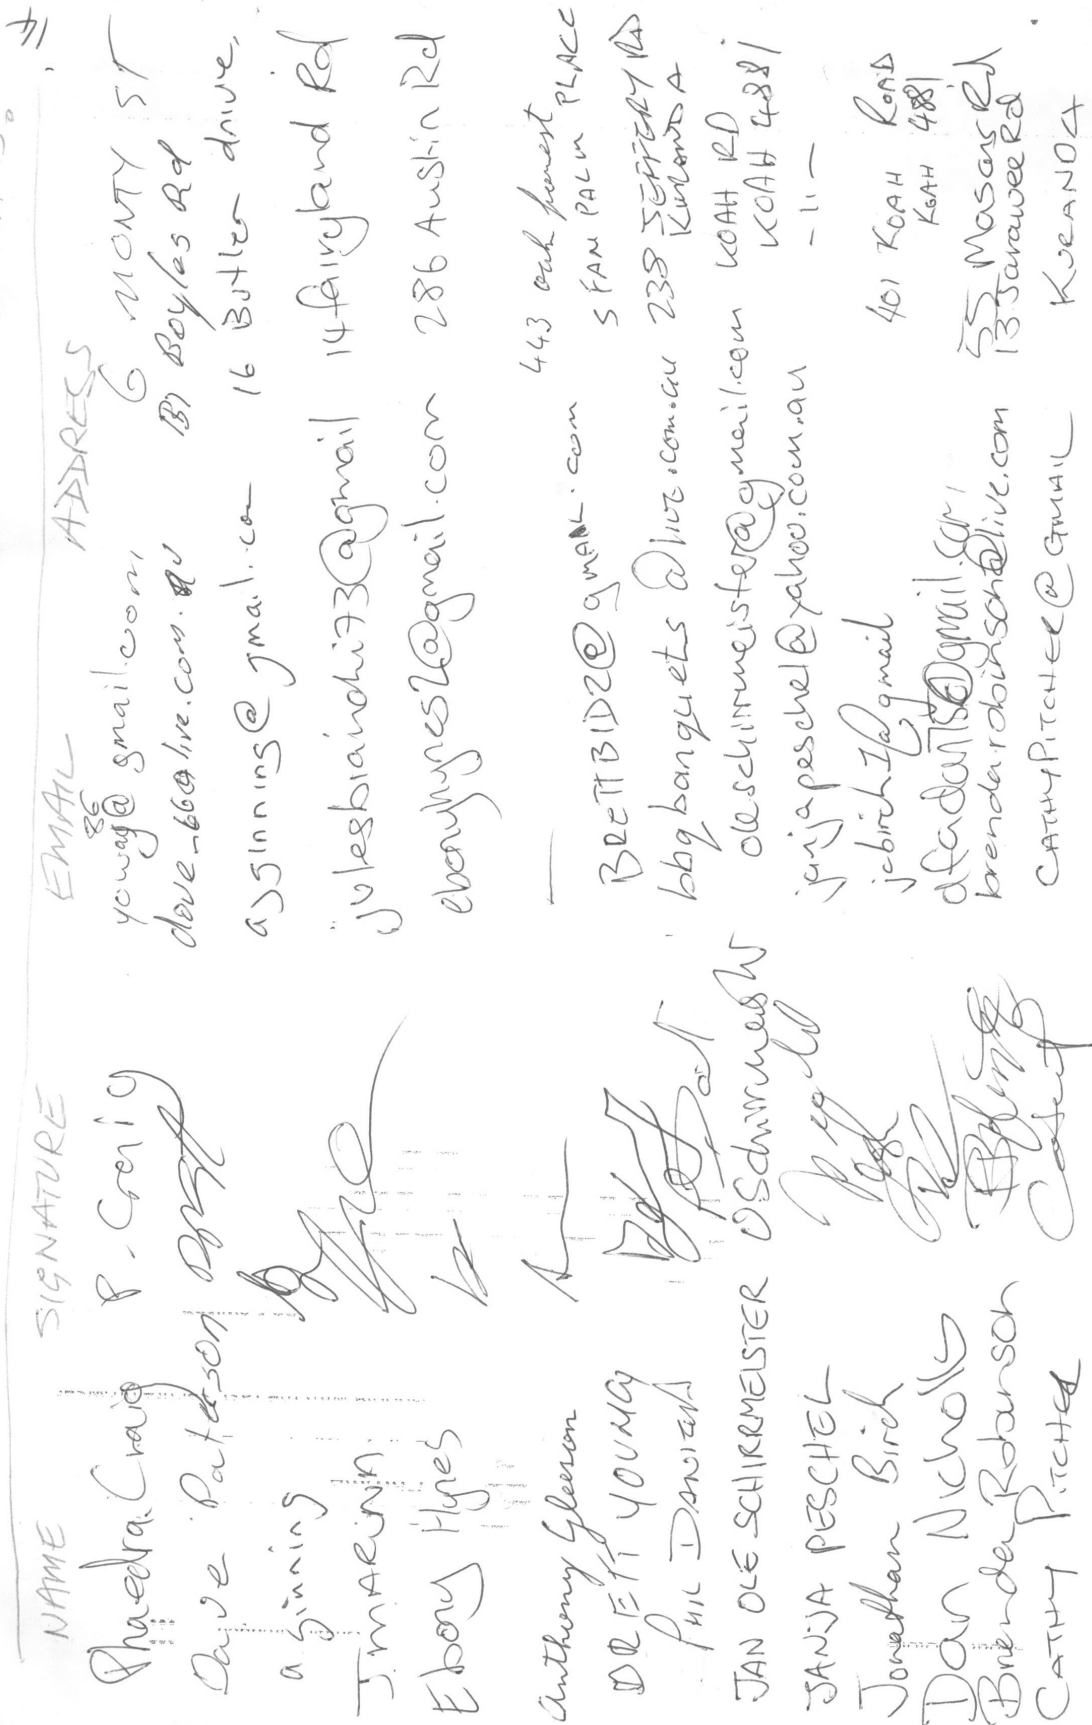 NAME SIGNATURE EMAIL ADDRESS
Phaedra Craig P. Craig youway86@gmail.com 6 MONTY ST
Dave Paterson dave-66@live.com.au 131 Boyles Rd
a ginning agginning@gmail.com 16 Butler drive,
J MARINA julesbianchi73@gmail 14 fairyland Rd
Ebony Hynes ebonyhynes2@gmail.com 286 Austin Rd
Anthony Gleeson — 443 oak forest
BRETT YOUNG BRETTBIDZ@gmail.com 5 FAN PALM PLACE
PHIL DANIELS bbqbanquets@live.com.au 238 JEFFERY RD KURANDA
JAN OLE SCHIRRMEISTER oleschirrmeister@gmail.com KOAH RD KOAH 4881
JANJA PESCHEL janjapeschel@yahoo.com.au -11-
Jonathan Birch jcbirch1@gmail 401 KOAH ROAD KOAH 4881
Dan Nicholls 55 Masons Rd
Brenda Robinson brenda-robinson@live.com 13 Jarawee Rd
CATHY PITCHER CATHYPITCHER@GMAIL KURANDA